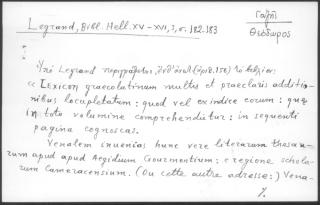 Legrand, Bibl. Hell. XV-XVI, 3, σ. 182.183
Γαζῆς
Θεόδωρος
Ὑπὸ Legrand περιγράφεται, ἀριθ. 158) τὸ ἑξῆς:
« Lexicon graecolatinum multis et praeclaris additio-
nibus locupletatum: quod vel ex indice eorum: quae
in toto volumine comprehenditur: in sequenti
pagina cognoscas.
Venalem invenias hunc vere literarum thesau-
rum apud apud Aegidium Gourmontium: e regione schola-
rum Cameracensium. (Ou cette autre adresse:) Vena-
%